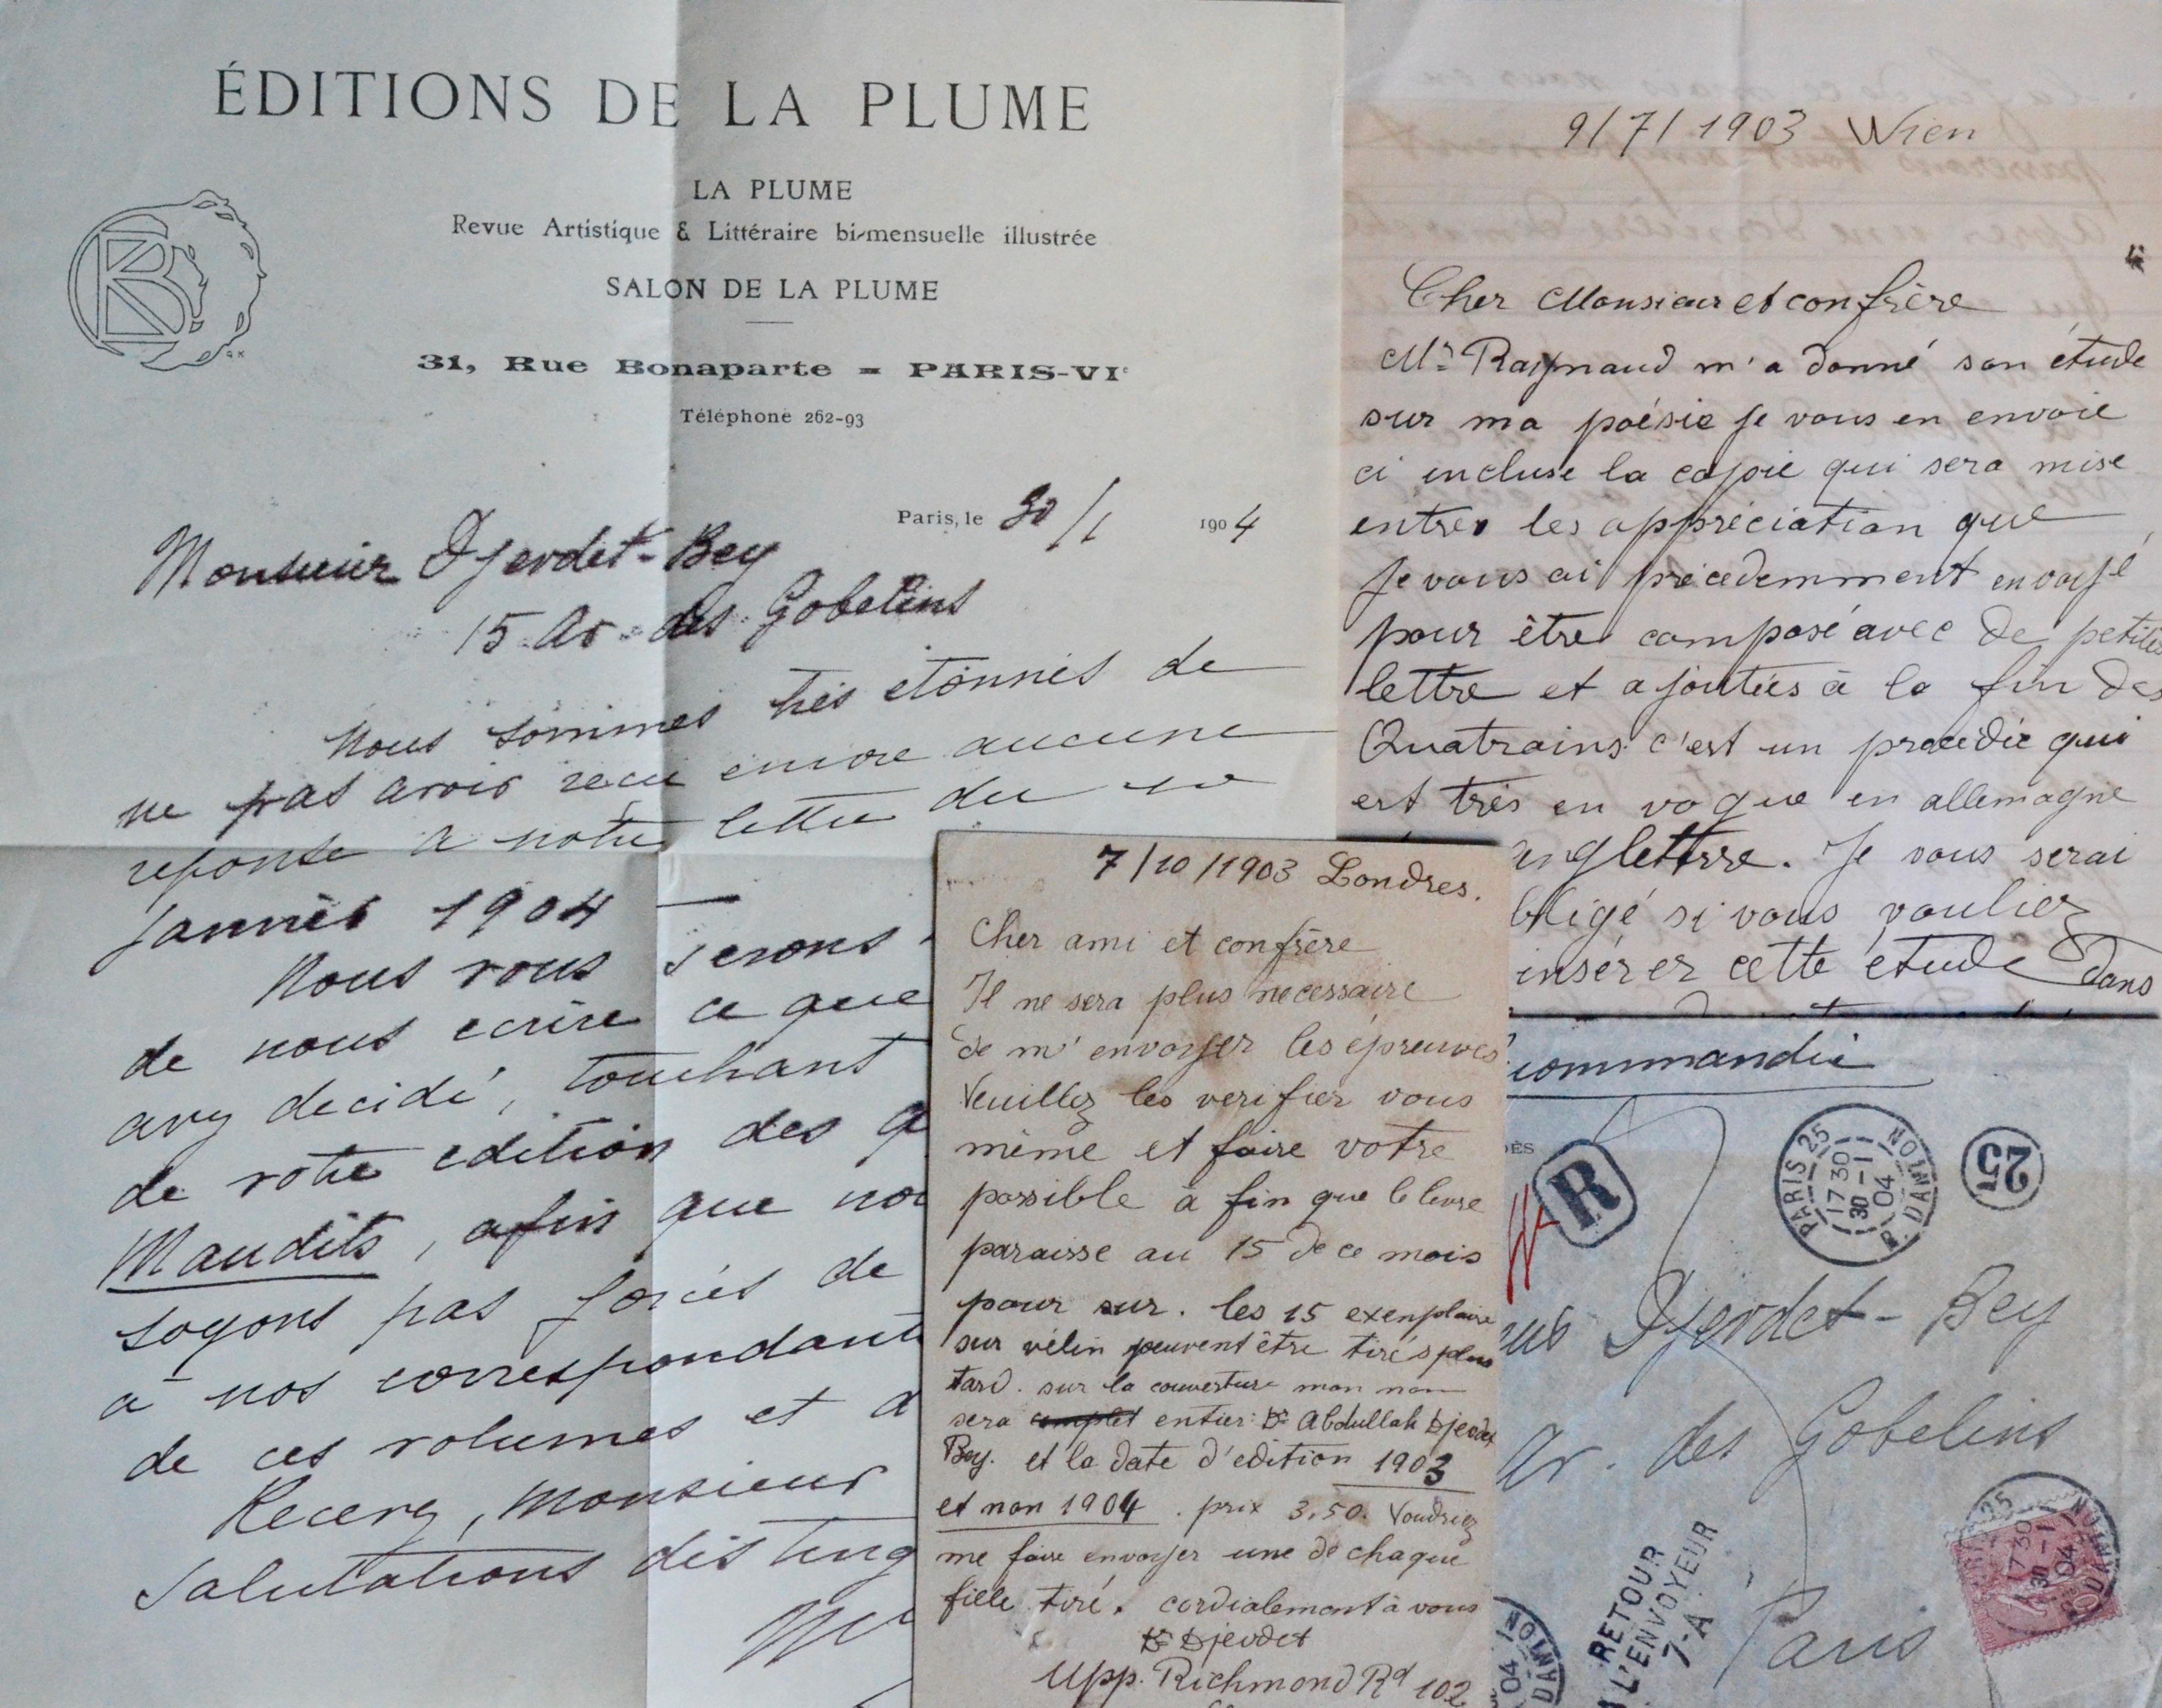 ÉDITIONS DE LA PLUME
LA PLUME
Revue Artistique & Littéraire bi-mensuelle illustrée
SALON DE LA PLUME
31, Rue Bonaparte = PARIS-VIe
Téléphone 262-93
Paris, le 30/1 1904
Monsieur Djevdet-Bey
15 Av. des Gobelins
Nous sommes très étonnés de
ne pas avoir reçu encore aucune
reponse a notre lettre du
Janvier 1904 —
Nous vous serons
de nous ecrire ce que
avez decidé, touchant
de votre edition des Q
Maudits, afin que nou
soyons pas forcés de
a nos correspondants
de ces volumes et d
Recevez, Monsieur
Salutations disting
9/7/1903 Wien
Cher Monsieur et confrère
Mr Raymaud m'a donné son étude
sur ma poésie je vous en envoie
ci incluse la copie qui sera mise
entre les appréciation que
je vous ai précedemment envoyé
pour être composé avec de petites
lettre et ajoutées à la fin des
Quatrains c'est un procédée qui
est très en vogue en allemagne
anglettrre. Je vous serai
bligé si vous vouliez
insérer cette étude dans
7/10/1903 Londres.
Cher ami et confrère
Il ne sera plus necessaire
de m'envoyer les épreuves
Veuillez les verifier vous
même et faire votre
possible à fin que le livre
paraisse au 15 de ce mois
pour sur. les 15 exenplaire
sur vélin peuvent être tirés plus
tard. sur la couverture mon nom
sera complet entier: Dr Abdullah Djevdet
Bey. et la date d'edition 1903
et non 1904. prix 3,50. Voudriez
me faire envoyer une de chaque
fille tiré. cordialement à vous
Dr Djevdet
Upp. Richmond Rd 102
commandée
DÉS
R
PARIS 25
17 30
30-1
04
R. DANTON
25
Djevdet-Bey
Av. des Gobelins
Paris
RETOUR
A L'ENVOYEUR
7-A
25
17 30
30-1
04
DANTON
04
DANTON